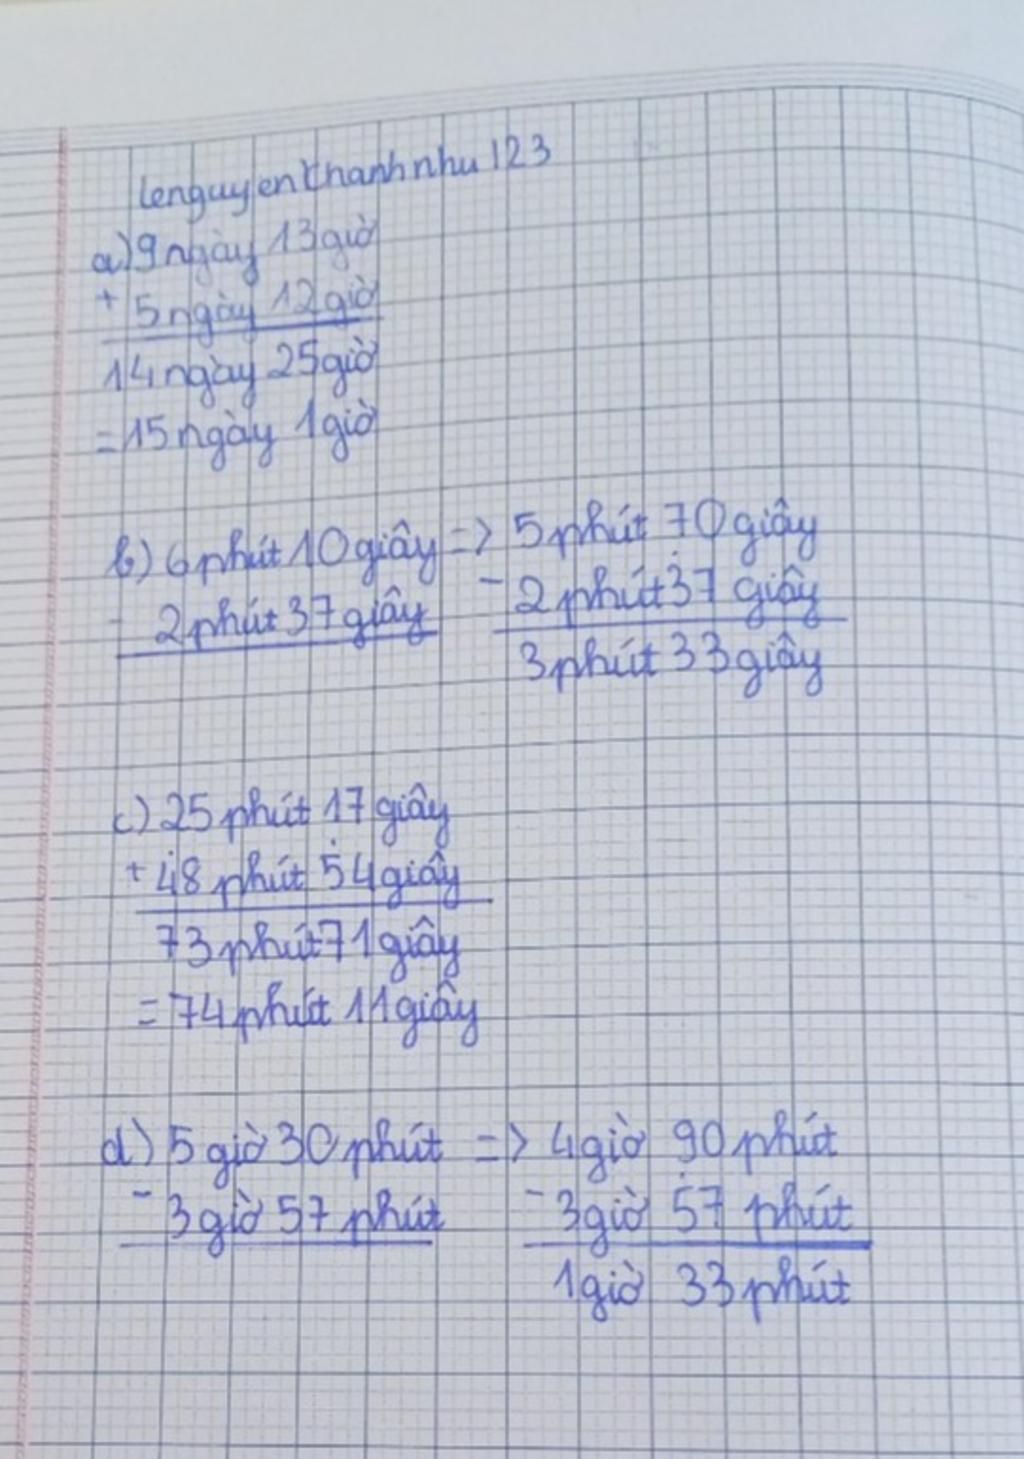 lenguyenthanhnhu123
a) 9 ngày 13 giờ
+ 5 ngày 12 giờ
14 ngày 25 giờ
= 15 ngày 1 giờ
b) 6 phút 10 giây => 5 phút 70 giây
- 2 phút 37 giây - 2 phút 37 giây
3 phút 33 giây
c) 25 phút 17 giây
+ 48 phút 54 giây
73 phút 71 giây
= 74 phút 11 giây
d) 5 giờ 30 phút => 4 giờ 90 phút
- 3 giờ 57 phút - 3 giờ 57 phút
1 giờ 33 phút